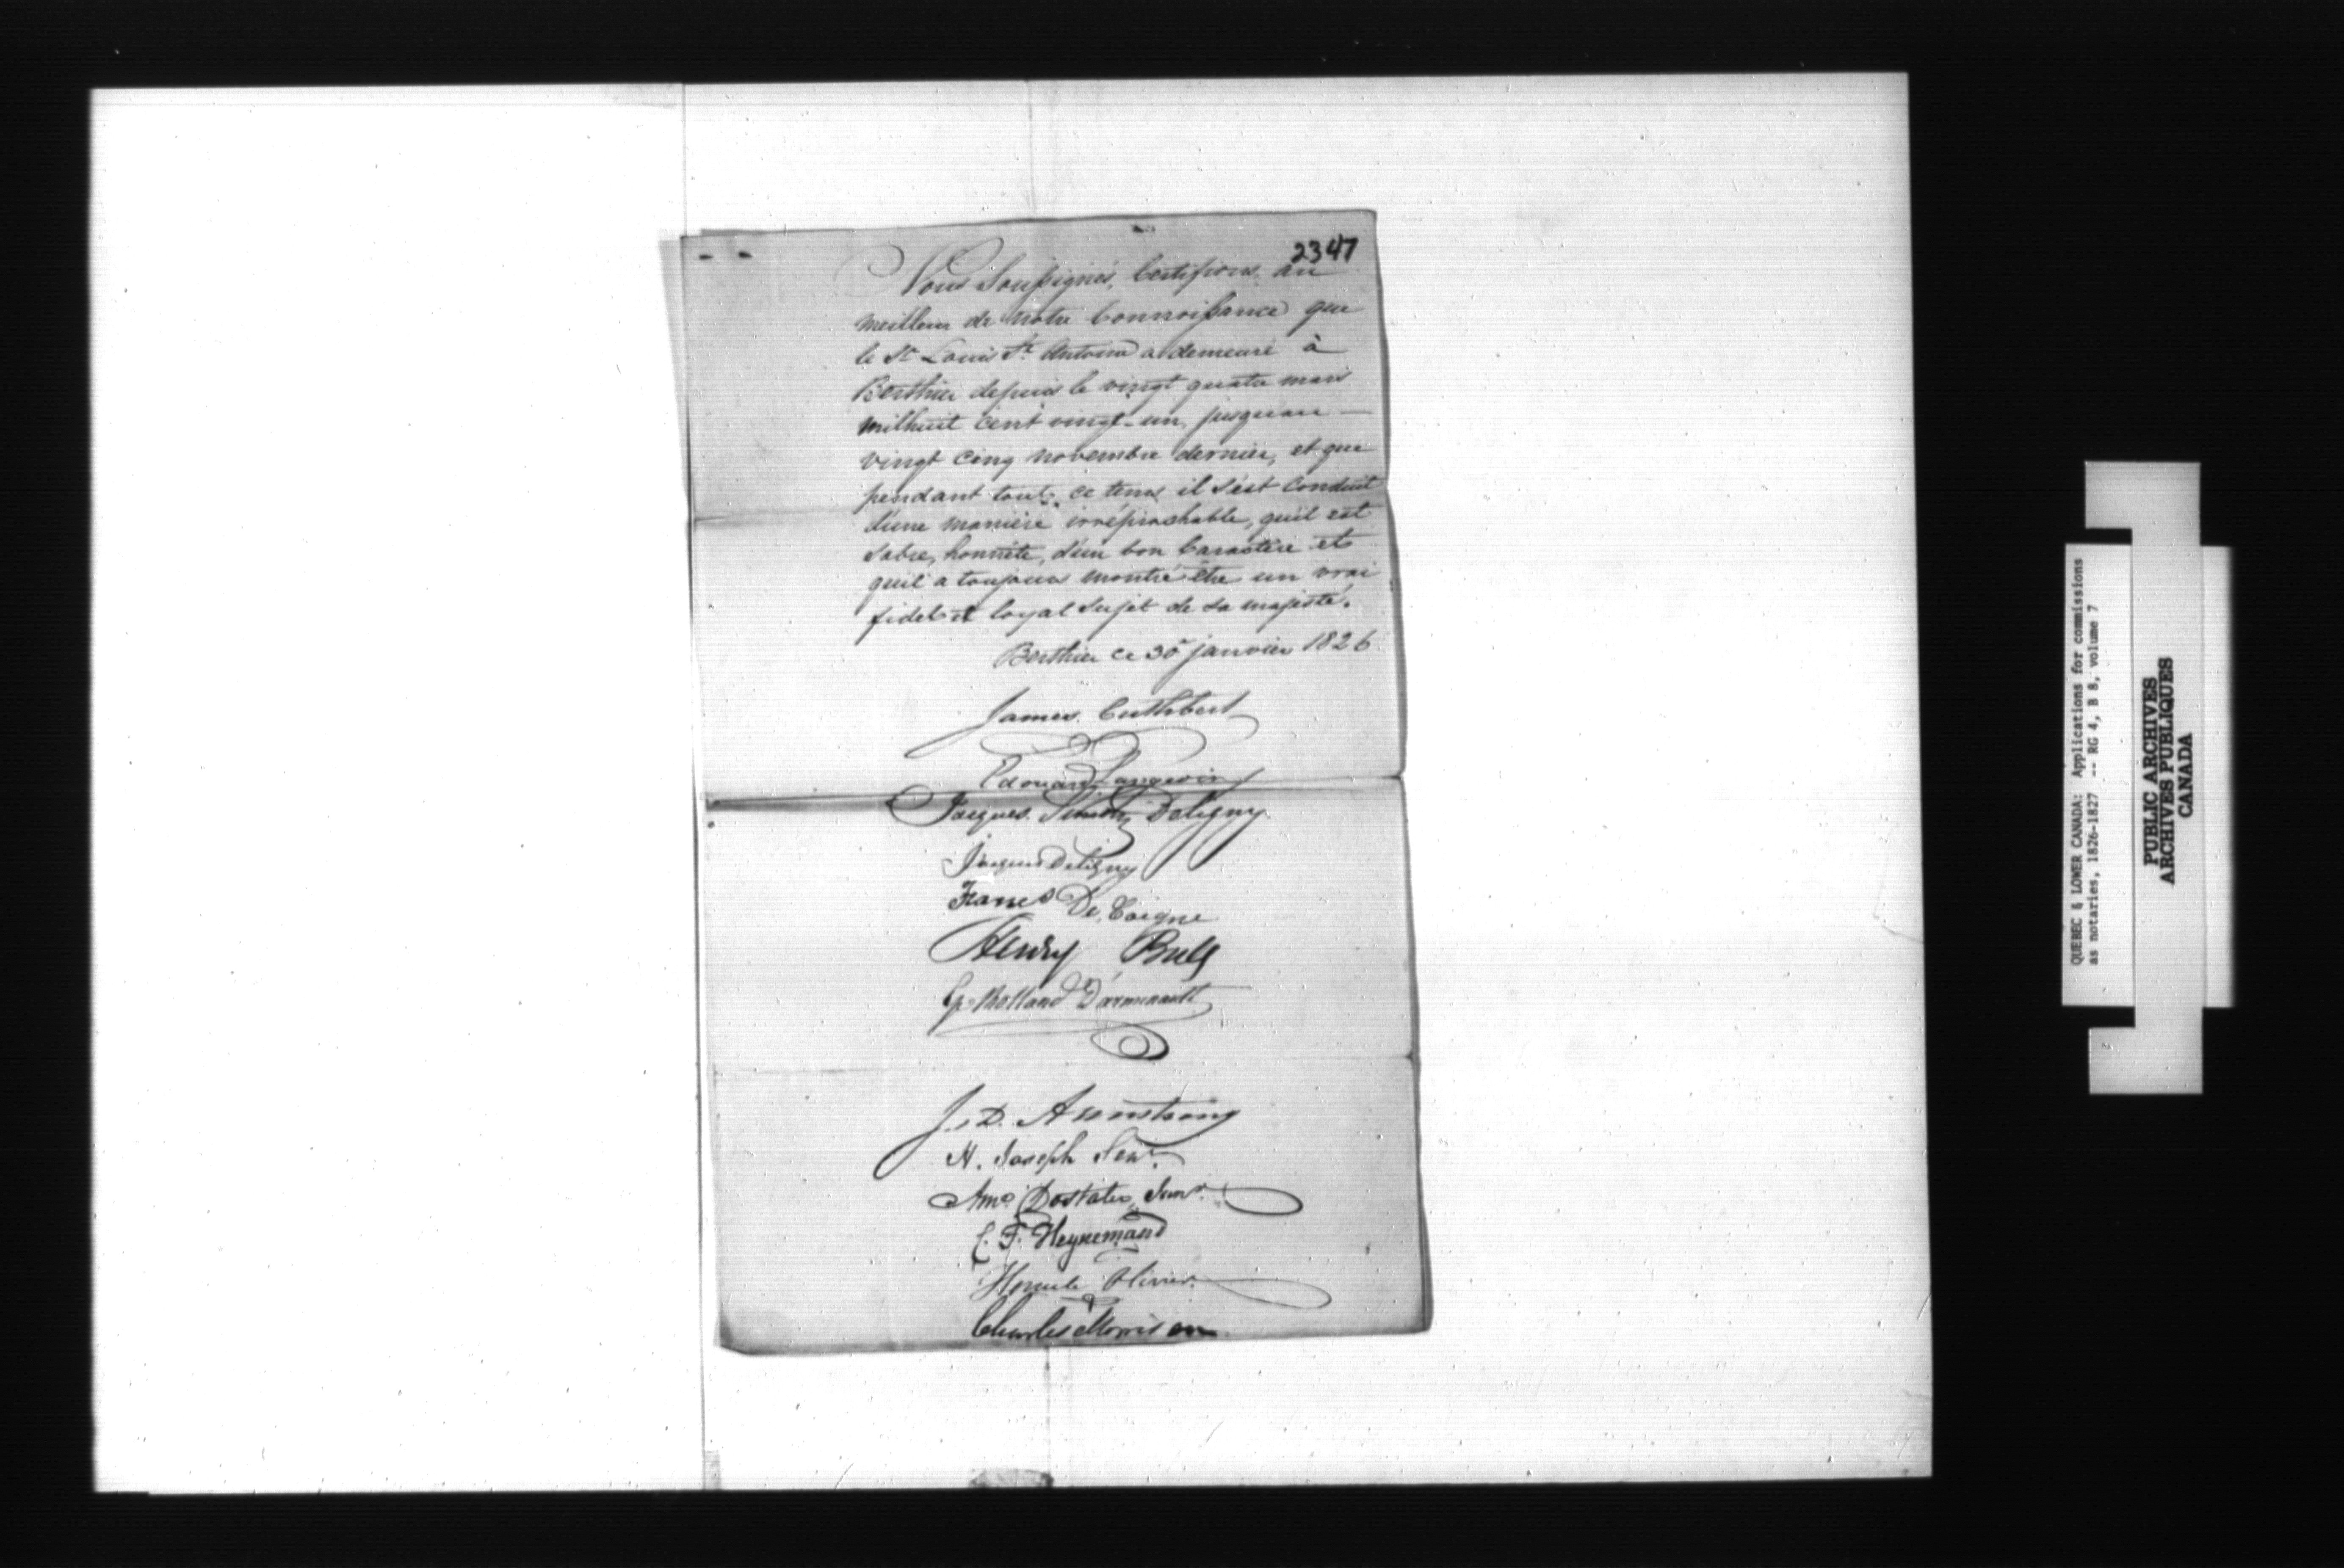 2347
Nous Soussignés, Certifions au
meilleur de notre Connoissance que
le Sr Louis St Antoine a demeuré à
Berthier depuis le vingt quatre mars
milhuit cent vingt-un, jusquau —
vingt cinq novembre dernier, et que
pendant tout ce tems il s'est Conduit
d'une manière irréprochable, quil est
sobre, honnête, d'un bon Caractère et
quil a toujours montré être un vrai
fidel et loyal Sujet de sa majesté.
Berthier ce 30 janvier 1826
James Cuthbert
Edouard Langevin
Jacques Deligny
Jacques Deligny
Francs De Coigne
Henry Bull
Rolland
J. D. Armstrong
H. Joseph Senr.
Amo Dostaler Junr.
C. F. Heynemand
Olivier
Charles Morrison
QUEBEC & LOWER CANADA: Applications for commissions
as notaries, 1826-1827 -- RG 4, B 8, volume 7
PUBLIC ARCHIVES
ARCHIVES PUBLIQUES
CANADA